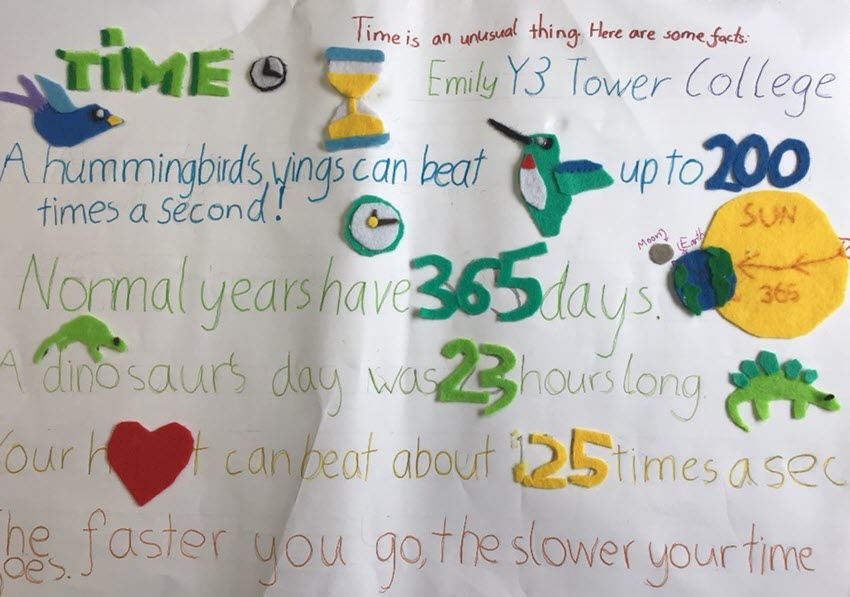 Time is an unusual thing. Here are some facts:
TiME
Emily Y3 Tower College
A hummingbird's wings can beat up to 200
times a second!
SUN
Moon
Earth
365
Normal years have 365 days.
A dinosaur's day was 23 hours long.
Your h t can beat about 1.25 times a sec
The faster you go, the slower your time
goes.